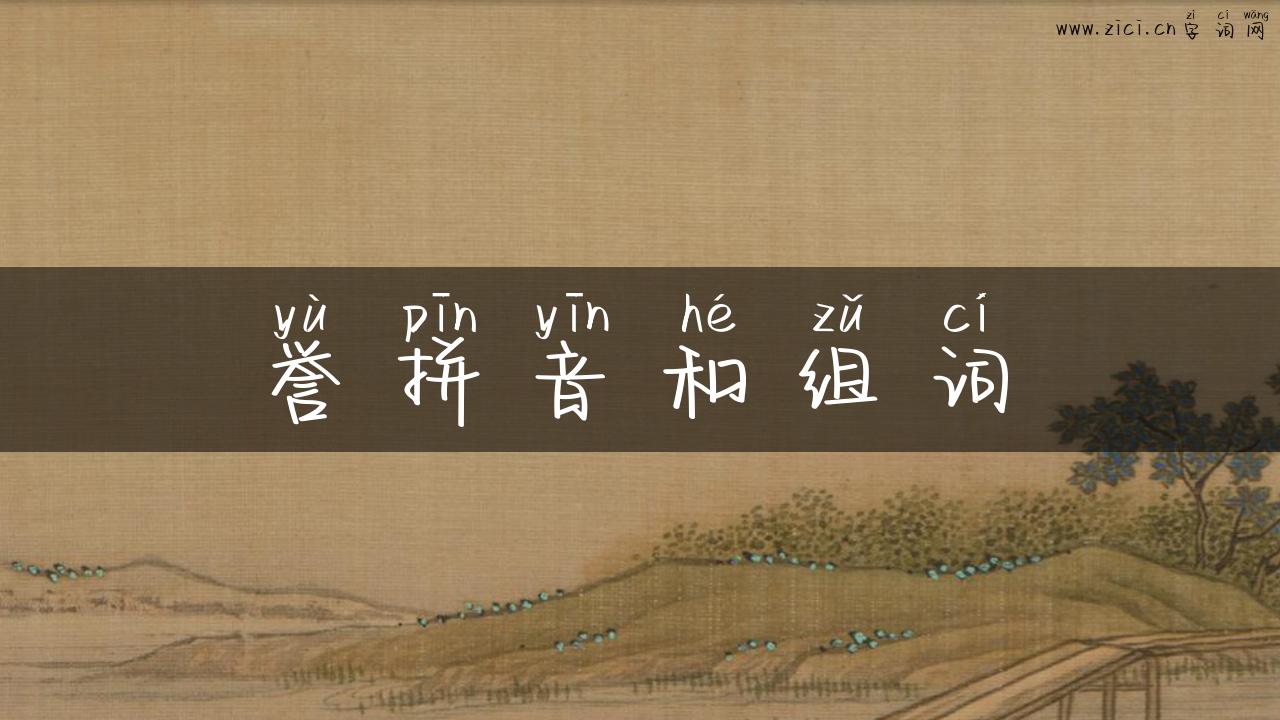 zì cí wǎng
www.zici.cn字词网
yù pīn yīn hé zǔ cí
誉拼音和组词